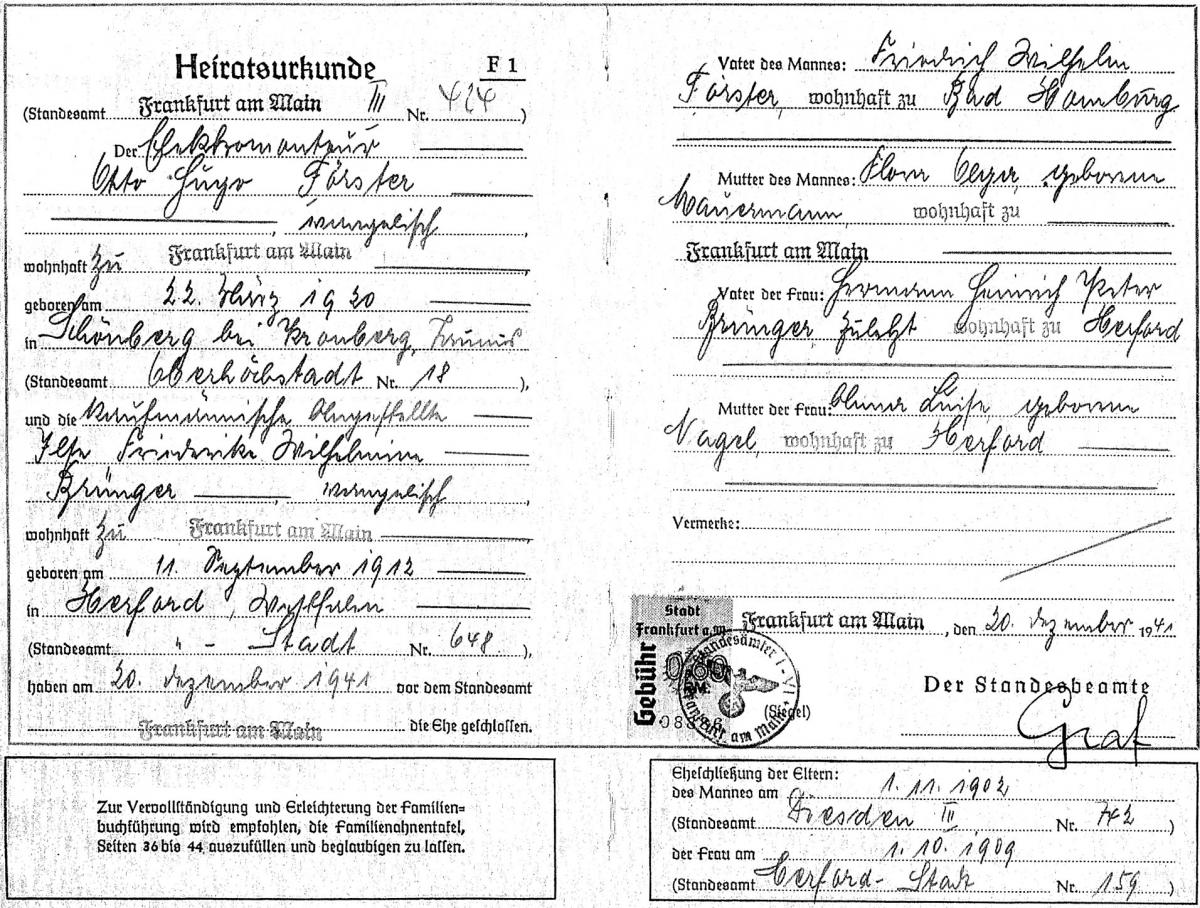 Heiratsurkunde F 1
(Standesamt Frankfurt am Main III Nr. 424 )
Der Elektromonteur
Otto Hugo Förster
, evangelisch ,
wohnhaft zu Frankfurt am Main
geboren am 22. März 1920
in Schönberg bei Kronberg, Taunus
(Standesamt Oberhöchstadt Nr. 18 ),
und die kaufmännische Angestellte
Ilse Friederike Wilhelmine
Brünger , evangelisch ,
wohnhaft zu Frankfurt am Main
geboren am 11. September 1912
in Herford, Westfalen
(Standesamt " - Stadt Nr. 648 ),
haben am 20. Dezember 1941 vor dem Standesamt
Frankfurt am Main die Ehe geschlossen.
Zur Vervollständigung und Erleichterung der Familien=
buchführung wird empfohlen, die Familienahnentafel,
Seiten 36 bis 44 auszufüllen und beglaubigen zu lassen.
Vater des Mannes: Friedrich Wilhelm
Förster, wohnhaft zu Bad Homburg
Mutter des Mannes: Flora Olga, geborene
Mauermann, wohnhaft zu
Frankfurt am Main
Vater der Frau: Hermann Heinrich Peter
Brünger, zuletzt wohnhaft zu Herford
Mutter der Frau: Anna Luise, geborene
Nagel, wohnhaft zu Herford
Vermerke:
Stadt
Frankfurt a.M.
Gebühr
0,60
RM
Standesämter I-VII
Frankfurt am Main
Frankfurt am Main , den 20. Dezember 1941
Der Standesbeamte
(Siegel)
Graf
Eheschließung der Eltern:
des Mannes am 1.11.1902
(Standesamt Dresden III Nr. 742 )
der Frau am 1.10.1909
(Standesamt Herford-Stadt Nr. 159 )